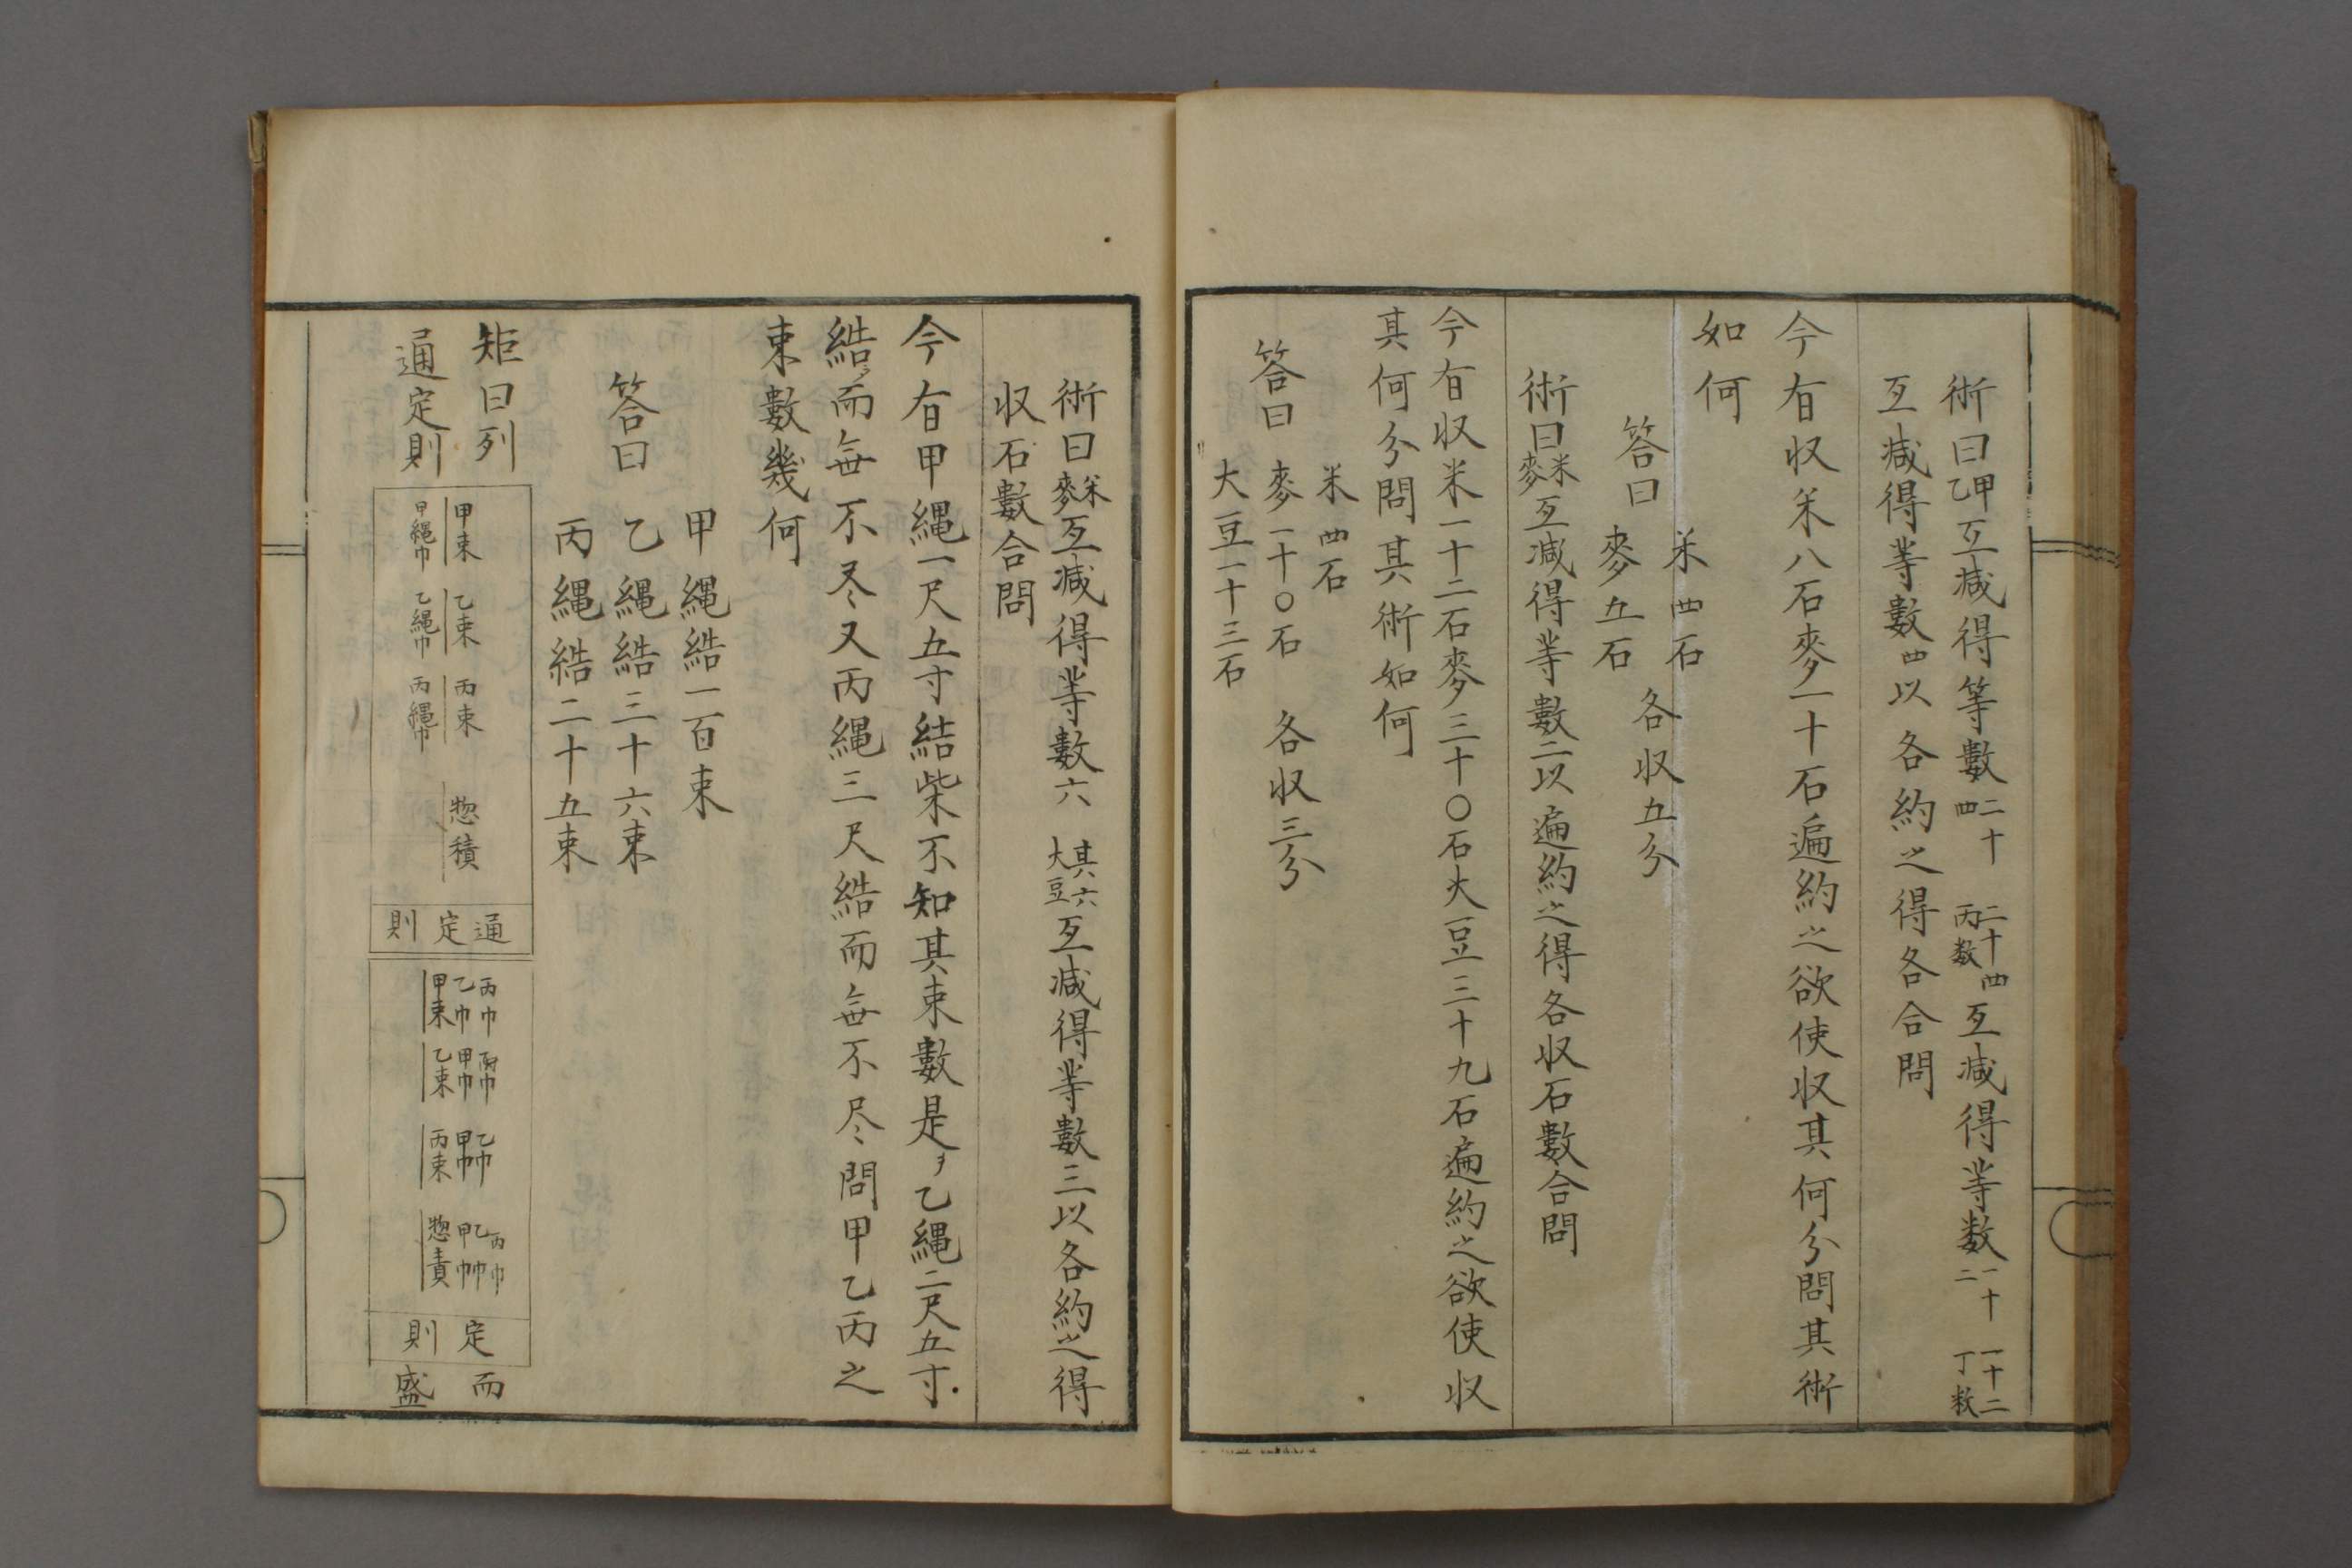 術曰甲乙互減得等數二十四二十四丙数互減得等数一十二一十二丁数
互減得等數四以各約之得各合問
今有収米八石麥一十石遍約之欲使収其何分問其術
如何
米四石
答曰
麥五石
各収五分
術曰米麥互減得等數二以遍約之得各収石數合問
今有収米一十二石麥三十〇石大豆三十九石遍約之欲使収
其何分問其術如何
米四石
答曰 麥一十〇石 各収三分
大豆一十三石
術曰米麥互減得等數六其六大豆六互減得等數三以各約之得
収石數合問
今有甲縄一尺五寸結柴不知其束數是ヲ乙縄二尺五寸
結而無不尽又丙縄三尺結而無不尽問甲乙丙之
束數幾何
甲縄結一百束
答曰 乙縄結三十六束
丙縄結二十五束
矩曰列
通定則
甲束 乙束 丙束 惣積
甲縄巾 乙縄巾 丙縄巾
通定則
丙巾 丙巾 乙巾 丙巾
乙巾 甲巾 甲巾 乙巾
甲束 乙束 丙束 甲巾
惣責
定則
而
盛